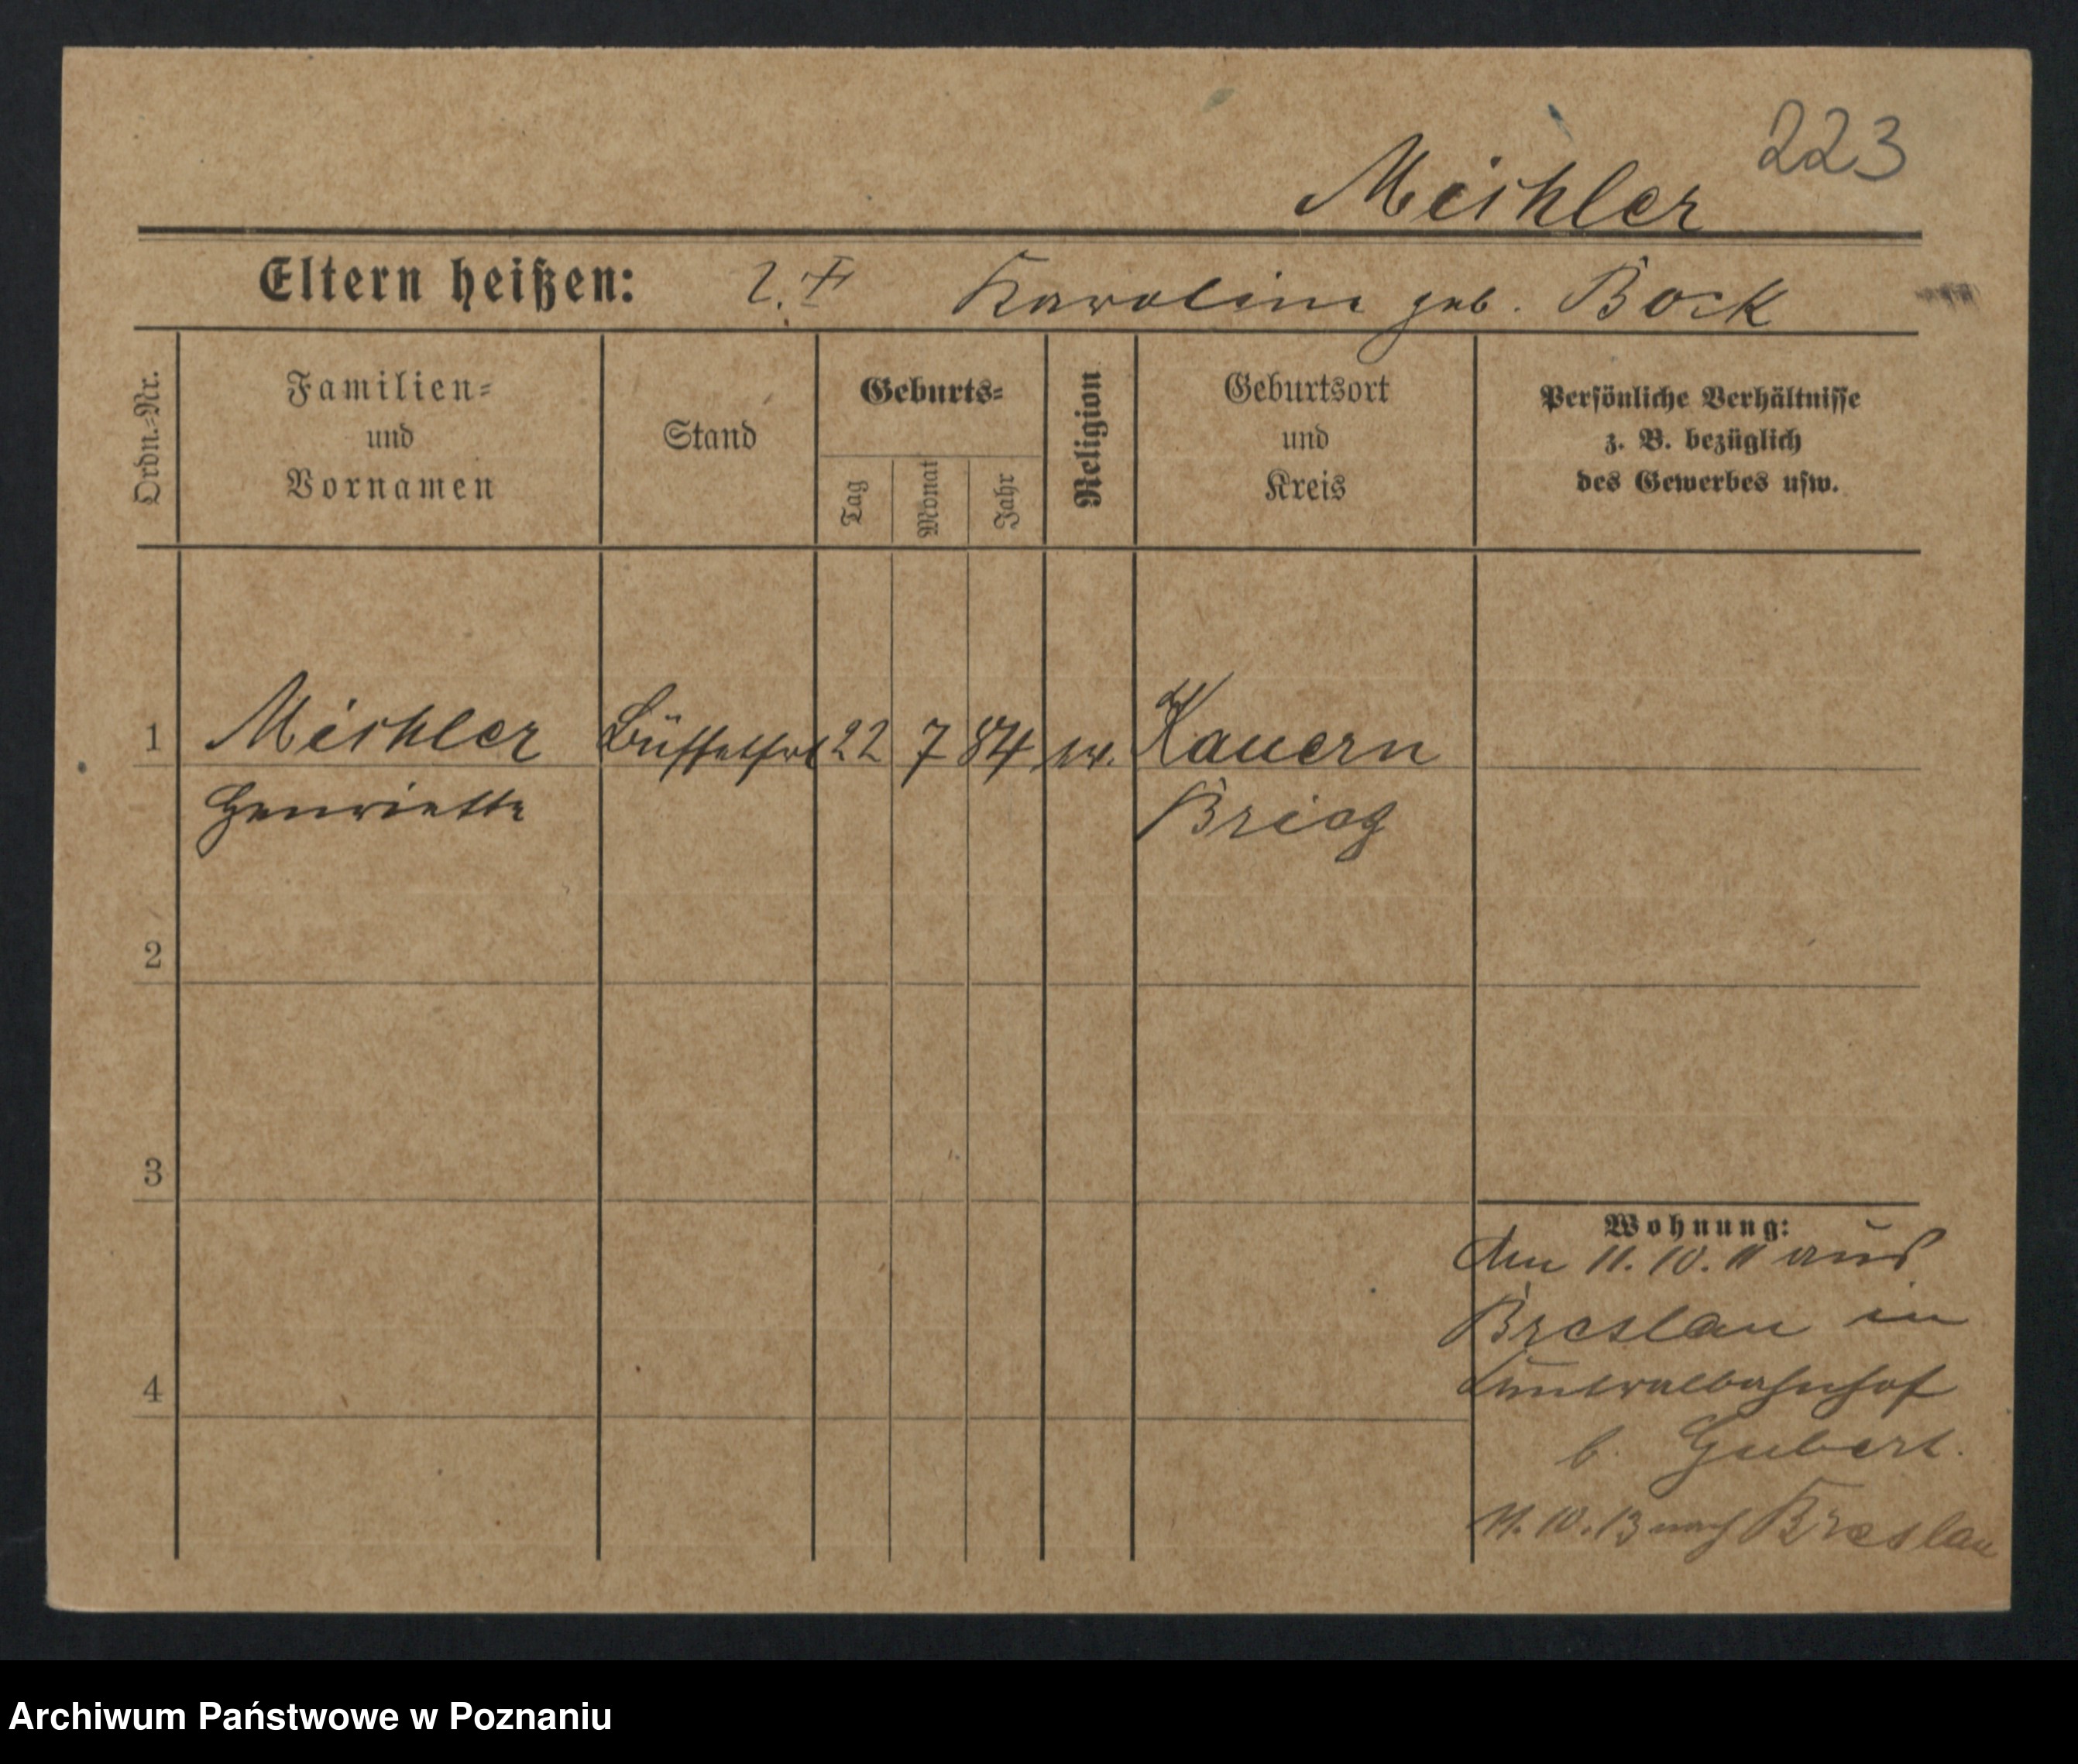 223
Meichler
Eltern heißen: Karoline geb. Bock
Ordn.-Nr.
Familien-
und
Vornamen
Stand
Geburts-
Tag
Monat
Jahr
Religion
Geburtsort
und
Kreis
Persönliche Verhältnisse
z. B. bezüglich
des Gewerbes usw.
1 22 7 84 Kauern
Henriette Brieg
2
3
Wohnung:
Am 11.10.11 aus
Breslau in
4 Centralbahnhof
b. Gubert.
11.10.13 nach Breslau
Archiwum Państwowe w Poznaniu